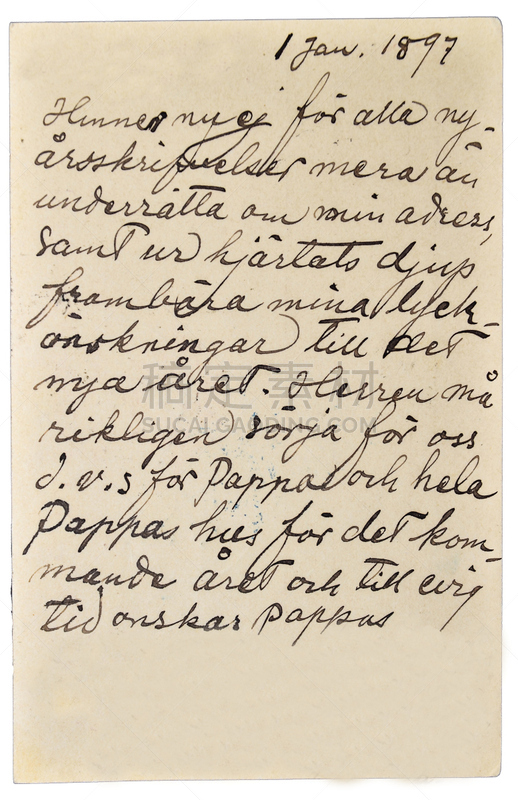 1 Jan. 1897
Hinner nu ej för alla ny-
årsskrifvelser mera än
underrätta om min adress,
samt ur hjärtats djup
frambära mina lyck-
önskningar till det
nya året. Herren må
rikligen sörja för oss
d.v.s för Pappas och hela
Pappas hus för det kom-
mande året och till evig
tid önskar Pappas
稿定素材
SUCAI.GAODING.COM